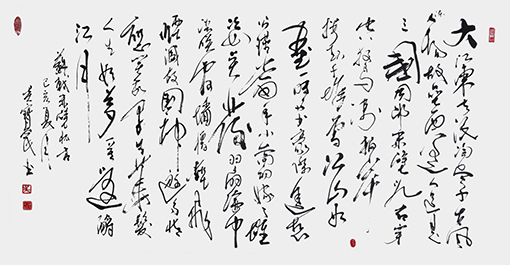 大江東去浪淘盡千古風
流人物故壘西邊人道是
三國周郎赤壁亂石穿
空驚濤拍岸
捲起千堆雪江山如
畫一時多少豪傑遙想
公瑾當年小喬初嫁了雄
姿英發羽扇綸巾
談笑間檣櫓灰飛
煙滅故國神遊多情
應笑我早生華髮
人生如夢一尊還酹
江月
蘇軾赤壁懷古
己亥夏月